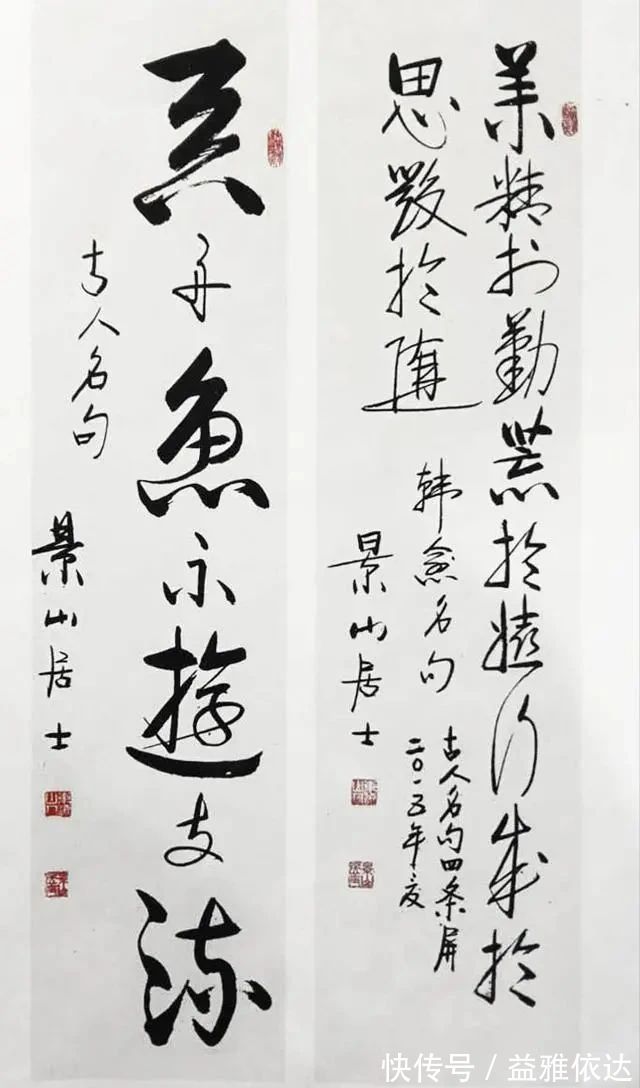 業精於勤荒於嬉行成於
思毀於隨
韓愈名句
古人名句四条屏
二〇一五年夏
景山居士
吞舟魚不遊支流
古人名句
景山居士
快传号/益雅依达